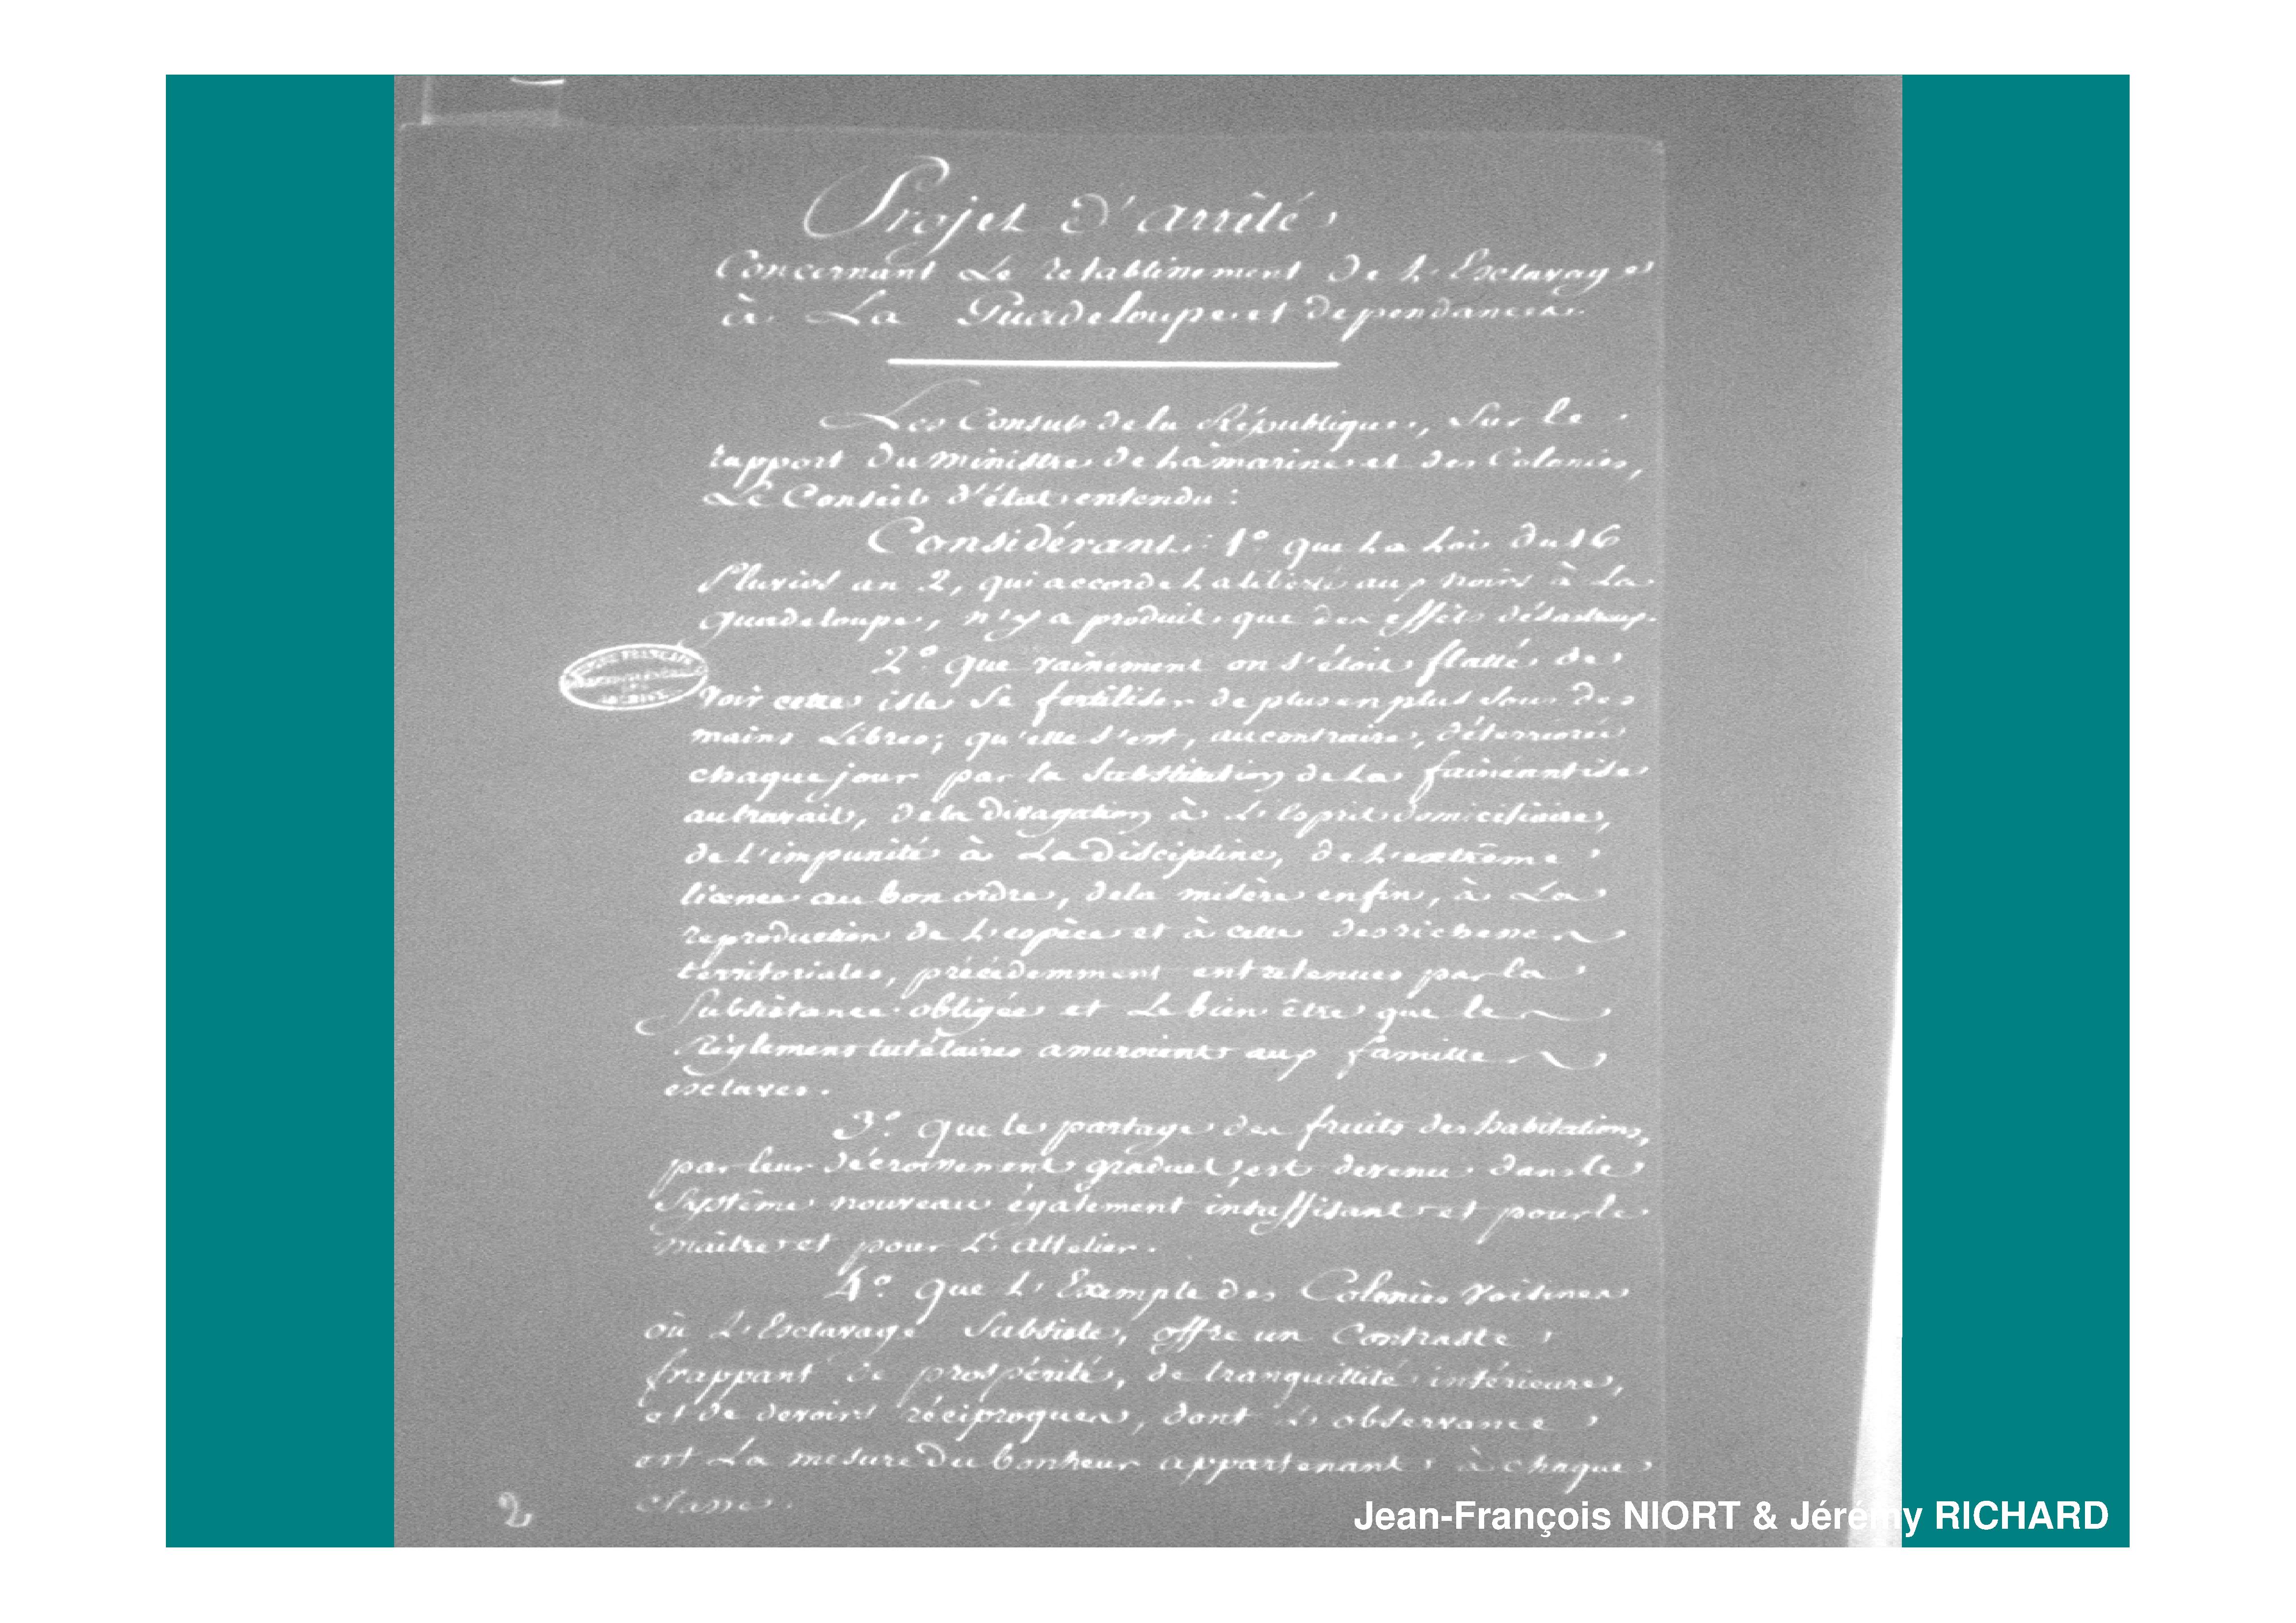 Projet d'arrêté
Concernant Le retablissement De L'Esclavage
à La Guadeloupe et dependances.
Les Consuls de la République, Sur le
rapport Du Ministre De La marine et des Colonies,
Le Conseil d'état entendu :
Considérant : 1° que La Loi Du 16
Pluviose an 2, qui accorde La liberté aux noirs à La
Guadeloupe, n'y a produit que des effets désastreux.
2° que vainement on s'étoit flatté de
Voir cette isle Se fertiliser de plus en plus sous des
mains Libres ; qu'elle s'est, au contraire, déteriorée
chaque jour par la Substitution de La fainéantise
au travail, de la divagation à L'esprit domiciliaire,
de l'impunité à La Discipline, de L'extrême
licence au bon ordre, de la misère enfin, à La
reproduction de L'espèce et à celle des richesses
territoriales, précédemment entretenues par la
Subsistance obligée et Le bien être que le
Règlement tutélaires assuroient aux familles
esclaves.
3° que le partage des fruits des habitations,
par leur décroissement graduel, est devenu dans le
Système nouveau également insuffisant et pour le
maître et pour L'attelier.
4° que L'Exemple des Colonies Voisines
où L'Esclavage Subsiste, offre un Contraste
frappant de prospérité, de tranquillité intérieure,
et de devoirs réciproques, dont L'observance
est La mesure Du bonheur appartenant à chaque
classe.
2
Jean-François NIORT & Jérémy RICHARD